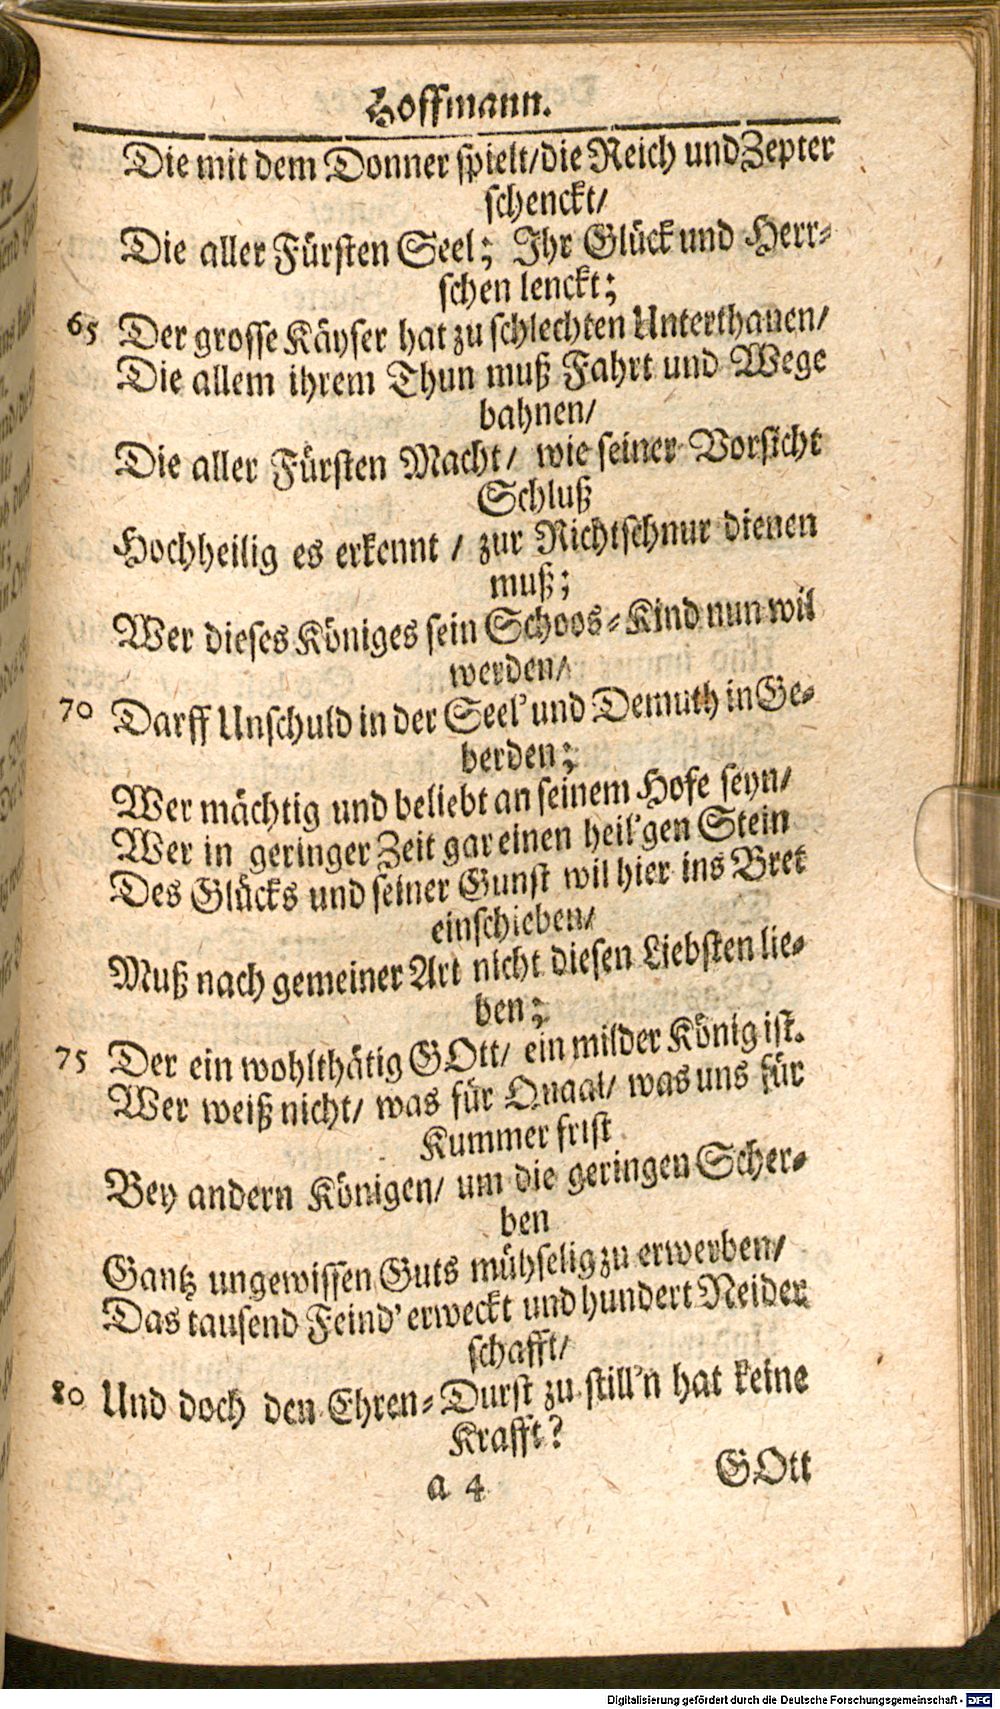 Hoffmann.
Die mit dem Donner spielt/die Reich und Zepter
schenckt/
Die aller Fürsten Seel; Ihr Glück und Herr-
schen lenckt;
65 Der grosse Käyser hat zu schlechten Unterthanen/
Die allem ihrem Thun muß Fahrt und Wege
bahnen/
Die aller Fürsten Macht/ wie seiner Vorsicht
Schluß
Hochheilig es erkennt / zur Richtschnur dienen
muß;
Wer dieses Königes sein Schoos-Kind nun wil
werden/
70 Darff Unschuld in der Seel' und Demuth in Ge-
berden;
Wer mächtig und beliebt an seinem Hofe seyn/
Wer in geringer Zeit gar einen heil'gen Stein
Des Glücks und seiner Gunst wil hier ins Bret
einschieben/
Muß nach gemeiner Art nicht diesen Liebsten lie-
ben;
75 Der ein wohlthätig GOtt/ ein milder König ist.
Wer weiß nicht/ was für Quaal/ was uns für
Kummer frist
Bey andern Königen/ um die geringen Scher-
ben
Gantz ungewissen Guts mühselig zu erwerben/
Das tausend Feind' erweckt und hundert Neider
schafft/
80 Und doch den Ehren-Durst zu still'n hat keine
Krafft?
a 4 GOtt
Digitalisierung gefördert durch die Deutsche Forschungsgemeinschaft - DFG